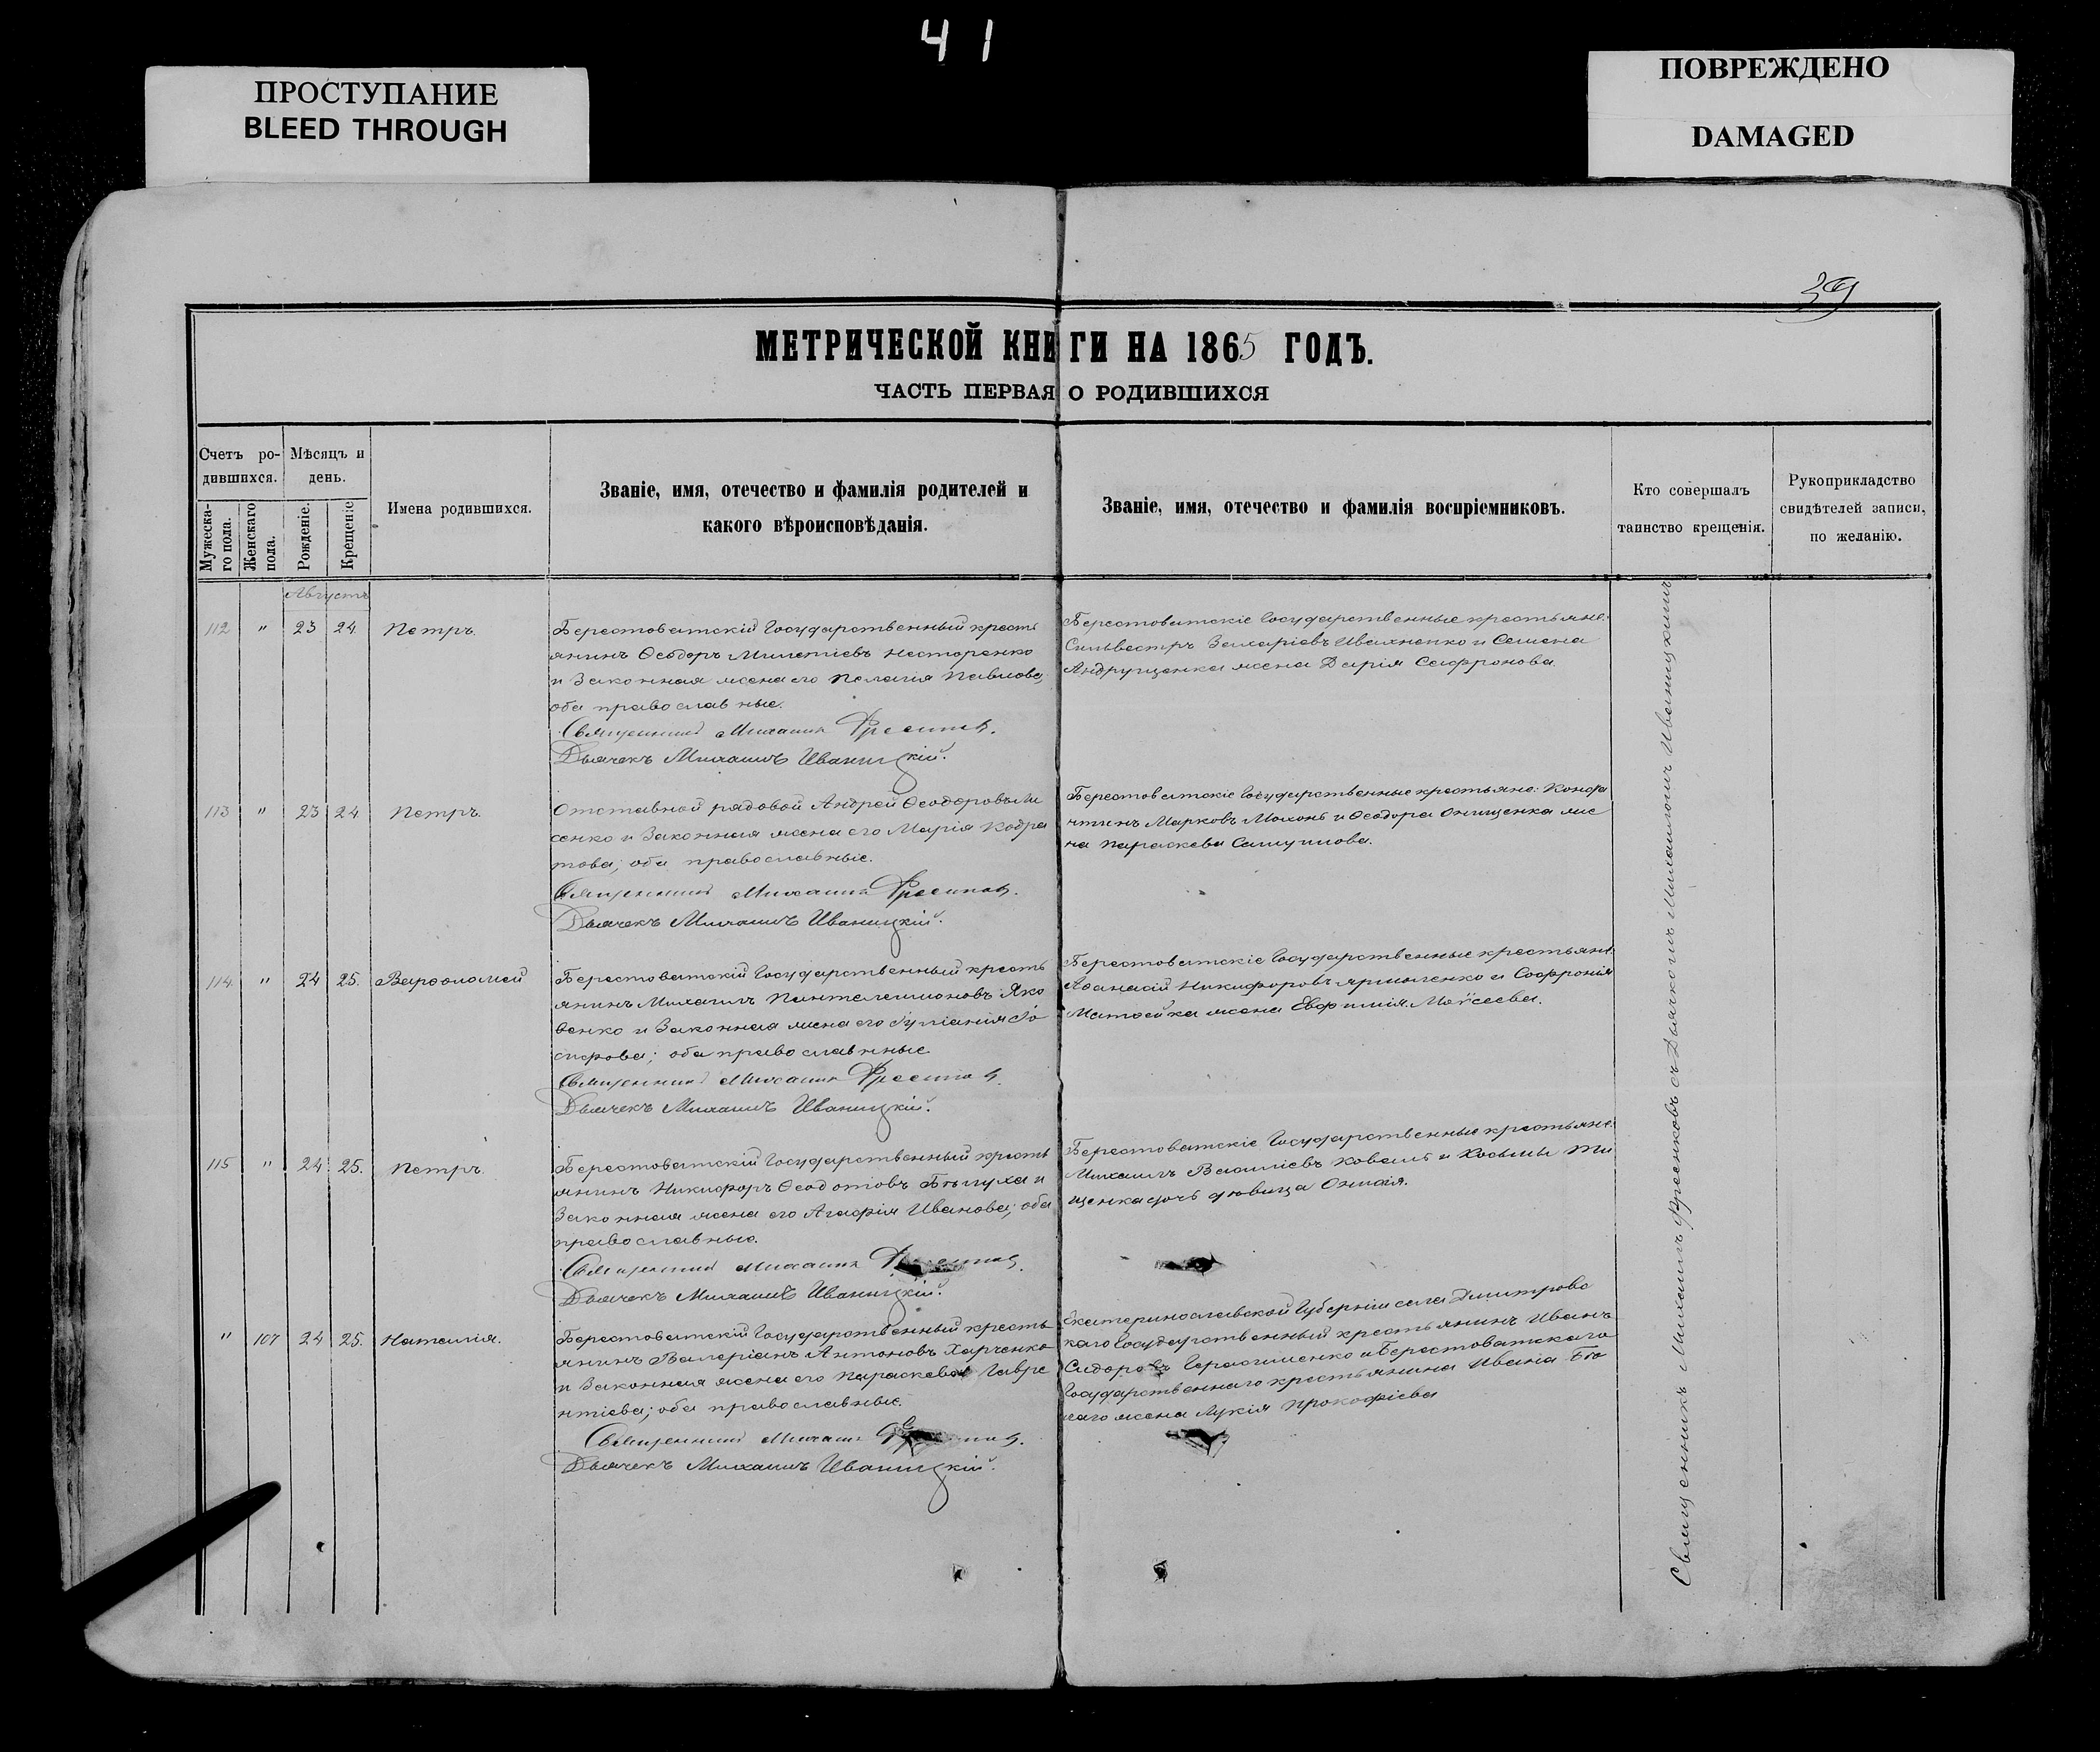 41
ПРОСТУПАНИЕ
BLEED THROUGH
ПОВРЕЖДЕНО
DAMAGED
39
МЕТРИЧЕСКОЙ КНИГИ НА 1865 ГОДЪ.
ЧАСТЬ ПЕРВАЯ О РОДИВШИХСЯ
Счетъ ро-
дившихся.
Мужеска-
го пола.
Женскаго
пола.
Мѣсяцъ и
день.
Рожденіе.
Крещеніе
Имена родившихся.
Званіе, имя, отечество и фамилія родителей и
какого вѣроисповѣданія.
Званіе, имя, отечество и фамилія воспріемниковъ.
Кто совершалъ
таинство крещенія.
Рукоприкладство
свидѣтелей записи,
по желанію.
Августъ
112 " 23 24 Петръ.
Берестоватскій Государственный кресть
янинъ Ѳеодоръ Милетіевъ Нестеренко
и Законная жена его Пелагія Павлова;
оба православные.
Священникъ Михаилъ Фесенковъ.
Дьячекъ Михаилъ Иваницкій.
Берестоватскіе Государственные крестьяне:
Сильвестръ Захаріевъ Ивахненко и Семена
Андрущенка жена Дарія Сафронова.
113 " 23 24 Петръ.
Отставной рядовой Андрей Ѳеодоровъ Ли
сенко и Законная жена его Марія Кодра
това; оба православные.
Священникъ Михаилъ Фесенковъ.
Дьячекъ Михаилъ Иваницкій.
Берестоватскіе Государственные крестьяне: Конста
нтинъ Марковъ и Ѳеодора Онищенка же
на Параскева Самуилова.
114 " 24 25. Варѳоломей
Берестоватскій Государственный кресть
янинъ Михаилъ Пантелеимоновъ Яко
венко и Законная жена его Іуліанія Іо
сифова; оба православные
Священникъ Михаилъ Фесенковъ.
Дьячекъ Михаилъ Иваницкій.
Берестоватскіе Государственные крестьяне:
Аѳанасій Никифоровъ и Софронія
Матвейка жена Евфимія Моѵсеева.
115 " 24 25. Петръ.
Берестоватскій Государственный кресть
янинъ Никифоръ Ѳеодотовъ и
Законная жена его Агафія Иванова; оба
православные.
Священникъ Михаилъ Фесенковъ.
Дьячекъ Михаилъ Иваницкій.
Берестоватскіе Государственные крестьяне:
Михаилъ Василіевъ Коваль и Косьмы Ти
щенка дочь дѣвица
" 107 24 25. Наталія.
Берестоватскій Государственный кресть
янинъ Валеріанъ Антоновъ Харченко
и Законная жена его Параскева Лавре
нтіева; оба православные.
Священникъ Михаилъ Фесенковъ.
Дьячекъ Михаилъ Иваницкій.
Екатеринославской Губерніи села Дмитровс
каго Государственный крестьянинъ Иванъ
Сидоровъ Герасименко и Берестоватскаго
Государственнаго крестьянина Ивана Бѣ
лаго жена Лукія Прокофіева
Священникъ Михаилъ Фесенковъ съ Дьячкомъ Михаиломъ Иваницкимъ